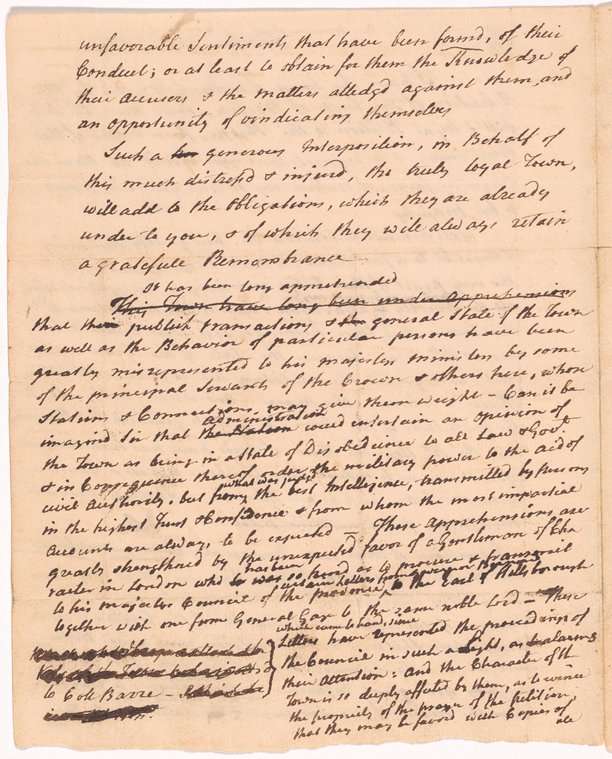 unfavorable Sentiments that have been formd, of their
Conduct; or at least to obtain for them the Knowledge of
their accusers & the matters alledgd against them, and
an opportunity of vindicating themselves
Such a generous Interposition, in Behalf of
this much distressd & injurd, tho truly loyal Town,
will add to the Obligations, which they are already
under to you, & of which they will always retain
a gratefull Remembrance
It has been long apprehended
This Town have long been under Apprehensions
that the publick transactions & the general State of the Town
as well as the Behavior of particular persons have been
greatly misrepresented to his majestys ministers by some
of the principal Servants of the Crown & others here, whose
Stations & Connections may give them weight - Can it be
administration
imagind Sir that the Nation would entertain an opinion of
the Town as being in a State of Disobedience to all Law & Govt
& in Consequence thereof order the military power to the aid of
what was judgd
civil Authority, but from the best Intelligence, transmitted by persons
in the highest Trust & Confidence & from whom the most impartial
Accounts are always to be expected - These apprehensions are
greatly strengthened by the unexpected favor of a Gentleman of Cha
has been
racter in London who was so kind as to procure & transmit
certain Letters from Governor Bernard
to his majestys Council of the province, to the Earl of Hillsborough
together with one from General Gage to the same noble Lord - These
which came to hand since
Letters have represented the proceedings of
the Council in such a Light, as to alarm
their attention: And the Character of the
to Coll Barre -
Town is so deeply affected by them, as to evince
the propriety of the prayer of the petition
that they may be favord with Copies of
all